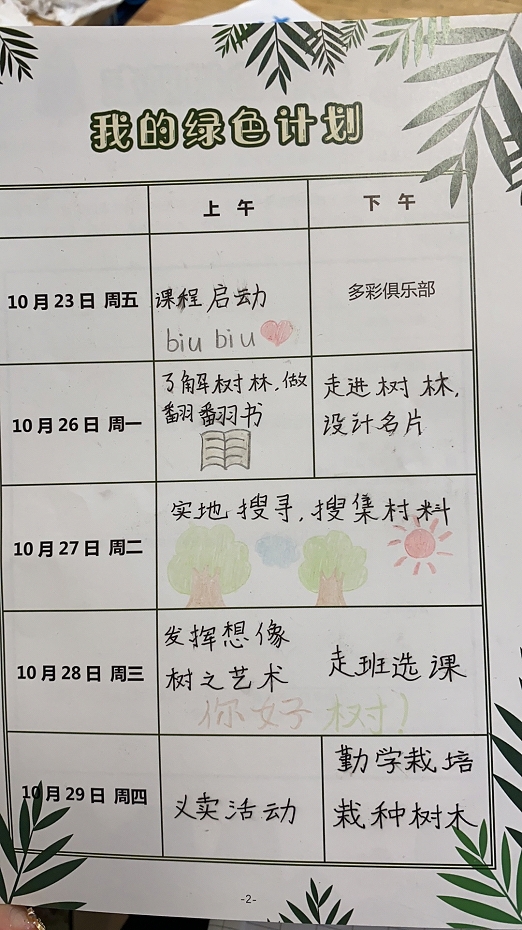 我的绿色计划
上午
下午
10月23日 周五
课程启动
biu biu
多彩俱乐部
10月26日 周一
了解树林,做
翻翻书
走进树林,
设计名片
10月27日 周二
实地搜寻,搜集材料
10月28日 周三
发挥想像
树之艺术
走班选课
你好树!
10月29日 周四
义卖活动
勤学栽培
栽种树木
-2-